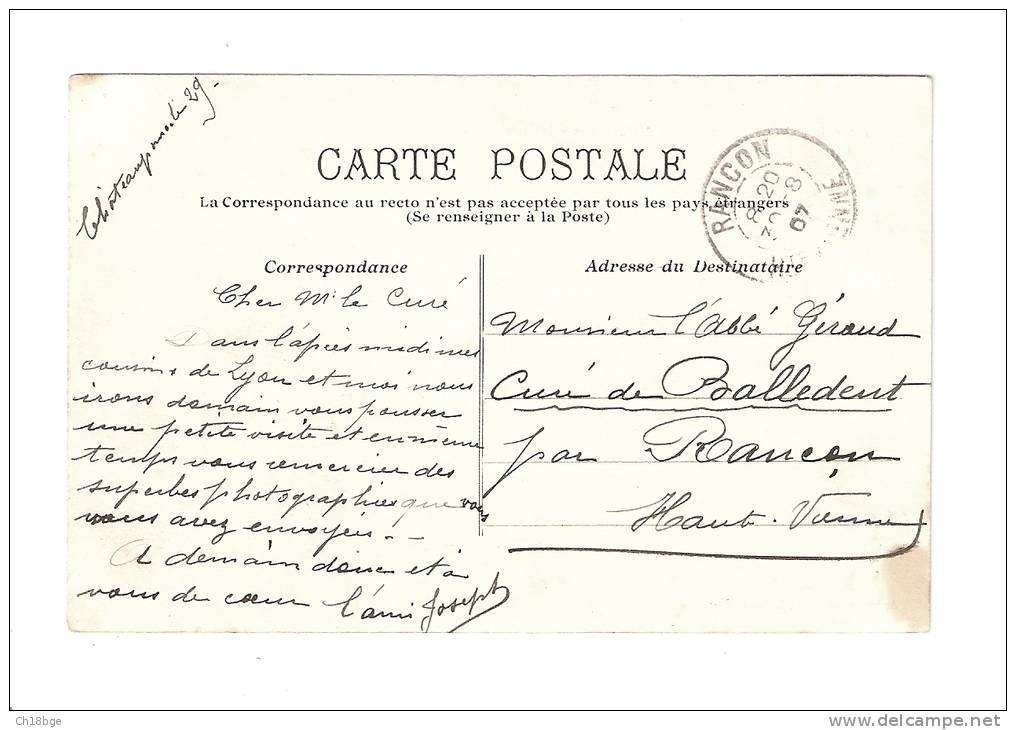 Châteauponsac le 29.
CARTE POSTALE
La Correspondance au recto n'est pas acceptée par tous les pays étrangers
(Se renseigner à la Poste)
RANCON
8 20
3 -8
07
VIENNE
Correspondance
Cher Mr le Curé
Dans l'après midi mes
cousins de Lyon et moi nous
irons demain vous pousser
une petite visite et en même
temps vous remercier des
superbes photographies que vous
vous avez envoyées. -
A demain donc et à
vous de cœur l'ami Joseph
Adresse du Destinataire
Monsieur l'Abbé Géraud
Curé de Balledent
par Rancon
Haute-Vienne
Ch18bge
www.delcampe.net